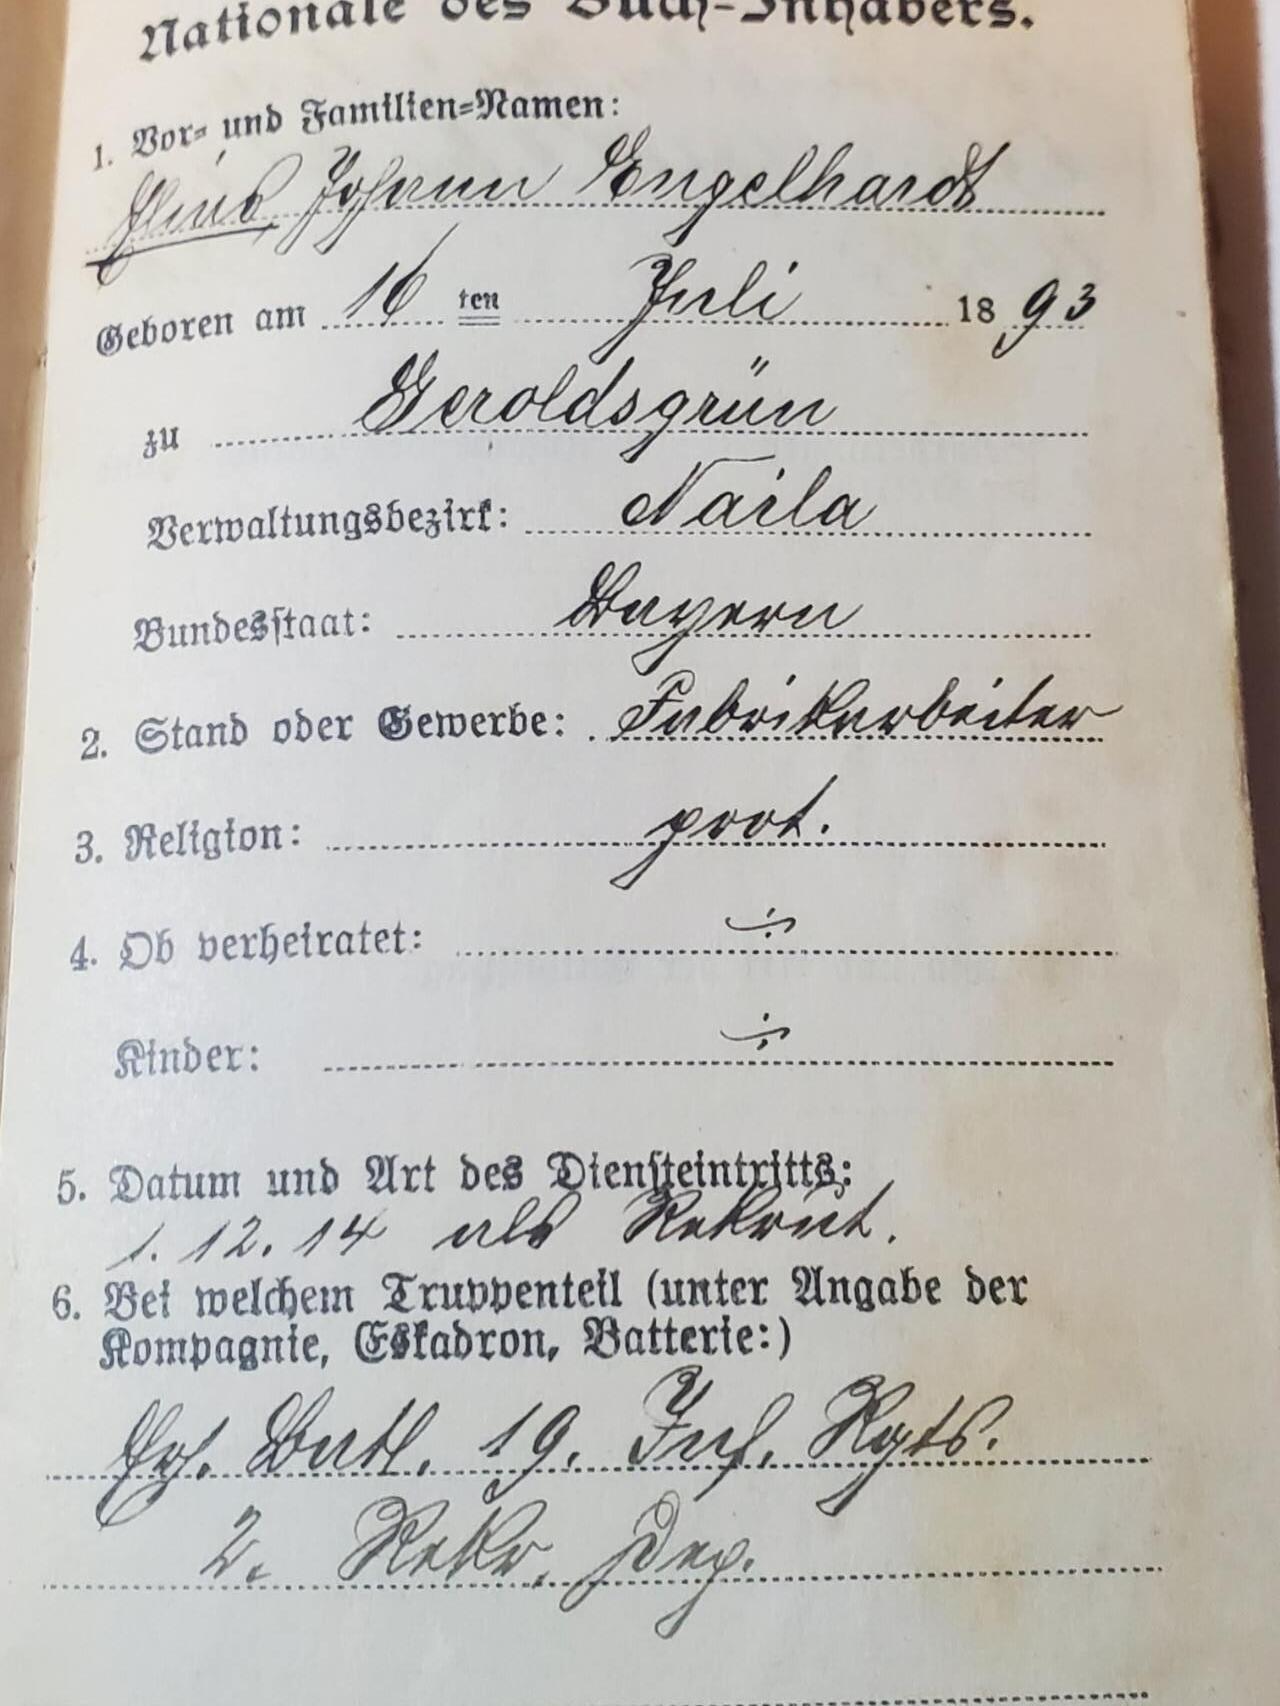 Nationale des Buch-Inhabers.
1. Vor- und Familien-Namen:
Johann Engelhardt
Geboren am 16 ten Juli 1893
zu Geroldsgrün
Verwaltungsbezirk: Naila
Bundesstaat: Bayern
2. Stand oder Gewerbe: Fabrikarbeiter
3. Religion: prot.
4. Ob verheiratet: ÷
Kinder: ÷
5. Datum und Art des Diensteintritts:
1. 12. 14 als Rekrut.
6. Bei welchem Truppenteil (unter Angabe der
Kompagnie, Eskadron, Batterie:)
Ers. Batl. 19. Inf. Rgts.
2. Rekr. Dep.